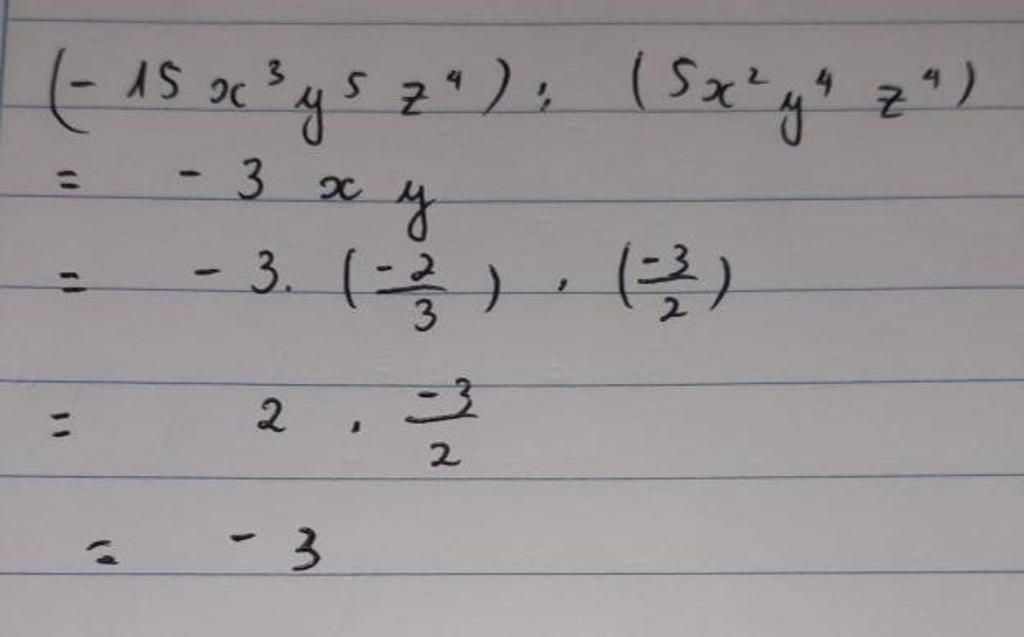 (- 15 x³ y⁵ z⁴) : (5x² y⁴ z⁴)
= - 3 x y
= - 3. (-2/3) . (-3/2)
= 2 . -3/2
= - 3